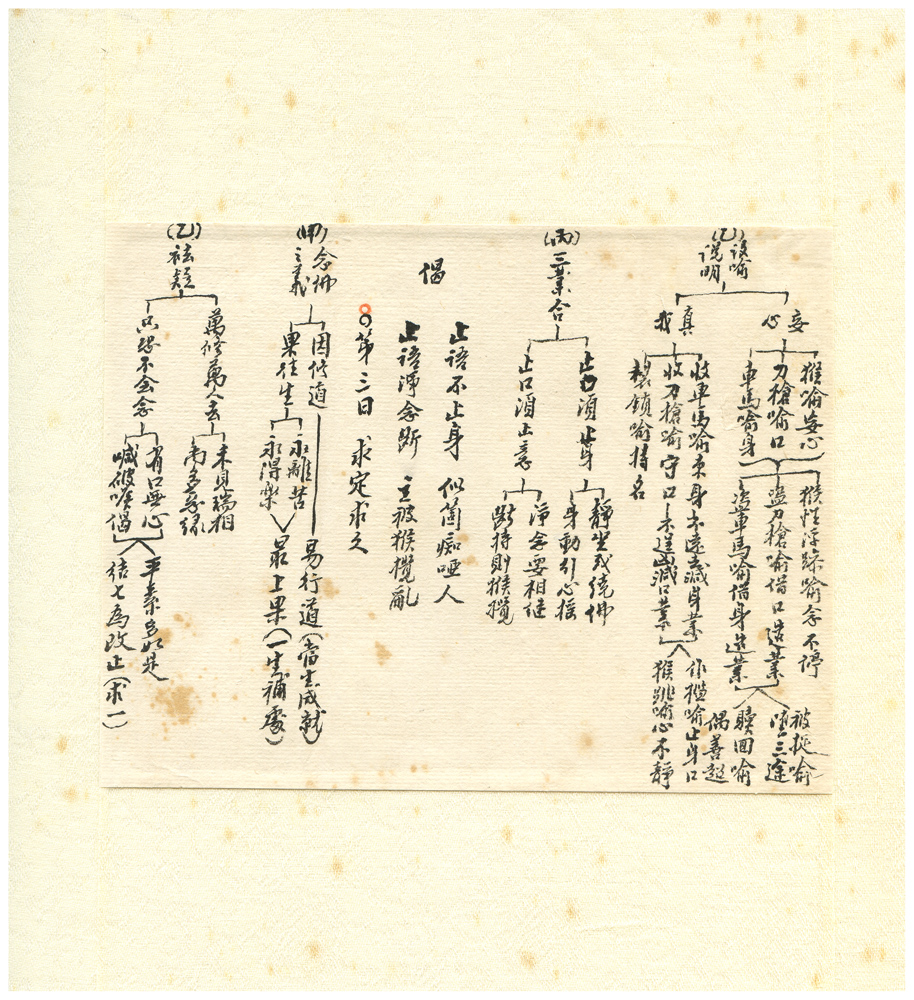 (乙)設喻
說明
妄心
猴喻妄心
刀槍喻口
車馬喻身
猴性浮躁喻念不停
盜刀槍喻借口造業
盜車馬喻借身造業
被捉喻
墮三途
贖回喻
偶善超
真我
收車馬喻束身 不遠去減身業
收刀槍喻守口 不逞減口業
製鎖喻持名
作檻喻止身口
猴跳喻心不靜
(丙)三業合
止口須止身
止口須止意
靜坐或繞佛
身動引心搖
淨念要相繼
斷持則猴攪
偈
止語不止身 似箇痴啞人
止語淨念斷 主被猴攪亂
第三日 求定求久
(甲)念佛
之義
因修道
果往生
永離苦
永得樂
易行道(當生成就)
最上果(一生補處)
(乙)祛疑
萬修萬人去
只愁不會念
未見瑞相
有口無心
喊破喉嚨
平素多如是
結七為改正(求一)